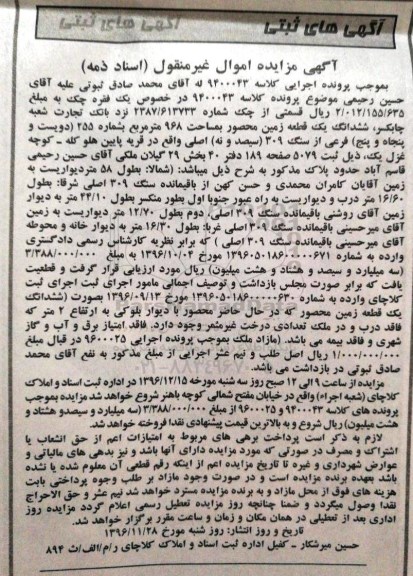 آگهی های ثبتی
آگهی های ثبتی
آگهی مزایده اموال غیرمنقول (اسناد ذمه)
بموجب پرونده اجرایی کلاسه ۹۴۰۰۰۴۳ له آقای محمد صادق ثبوتی علیه آقای
حسین رحیمی موضوع پرونده کلاسه ۹۴۰۰۰۴۳ در خصوص یک فقره چک به مبلغ
۲/۰۱۲/۱۵۵/۶۳۵ ریال قسمتی از چک شماره ۲۳۸۷/۶۱۳۷۳۳ نزد بانک تجارت شعبه
چابکسر، ششدانگ یک قطعه زمین محصور بمساحت ۹۶۸ مترمربع بشماره ۲۵۵ (دویست و
پنجاه و پنج) فرعی از سنگ ۳۰۹ (سیصد و نه) اصلی واقع در قریه پایین هلو کله ـ کوچه
غزل یک، ذیل ثبت ۵۰۷۹ صفحه ۱۸۹ دفتر ۴۰ بخش ۲۹ گیلان ملکی آقای حسین رحیمی
قاسم آباد حدود پلاک مذکور به شرح ذیل میباشد: شمالا: بطول ۵۸ متردیواریست به
زمین آقایان کامران محمدی و حسن کهن از باقیمانده سنگ ۳۰۹ اصلی شرقا: بطول
۱۶/۶۰ متر درب و دیواریست به راه عبور جنوبا اول بطور منکسر بطول ۴۴/۱۰ متر به دیوار
زمین آقای روشنی باقیمانده سنگ ۳۰۹ اصلی، دوم بطول ۱۲/۷۰ متر دیواریست به زمین
آقای میرحسینی باقیمانده سنگ ۳۰۹ اصلی غربا: بطول ۱۶/۳۰ متر به دیوار خانه و محوطه
آقای میرحسینی باقیمانده سنگ ۳۰۹ اصلی ) که برابر نظریه کارشناس رسمی دادگستری
وارده به شماره ۱۳۹۶۰۵۰۱۸۶۰۰۰۰۶۷۱ مورخ ۱۳۹۶/۱۰/۰۴ به مبلغ ۳/۳۸۸/۰۰۰/۰۰۰
(سه میلیارد و سیصد و هشتاد و هشت میلیون) ریال مورد ارزیابی قرار گرفت و قطعیت
یافت که برابر صورت مجلس بازداشت و توصیف اجمالی مامور اجرای ثبت اجرای ثبت
کلاچای وارده به شماره ۱۳۹۶۰۵۰۱۸۶۰۰۰۰۶۳۰ مورخ ۱۳۹۶/۰۹/۱۳ بصورت (ششدانگ
یک قطعه زمین محصور که در حال حاضر محصور با دیوار بلوکی به ارتفاع ۲ متر که
فاقد درب و در ملک تعدادی درخت غیرمثمر وجود دارد. فاقد امتیاز برق و آب و گاز
شهری و فاقد بیمه می باشد. (مازاد ملک بموجب پرونده اجرایی ۹۶۰۰۰۲۵ در قبال مبلغ
۱/۰۰۰/۰۰۰/۰۰۰ ریال اصل طلب و نیم عشر اجرایی از مبلغ مذکور به نفع آقای محمد
صادق ثبوتی در بازداشت می باشد.
مزایده از ساعت ۹ الی ۱۲ صبح روز سه شنبه مورخه ۱۳۹۶/۱۲/۱۵ در اداره ثبت اسناد و املاک
کلاچای (شعبه اجراء) واقع در خیابان مفتح شمالی کوچه باهنر شروع خواهد شد مزایده بموجب
پرونده های کلاسه ۹۴۰۰۰۴۳ و ۹۶۰۰۰۲۵ از مبلغ ۳/۳۸۸/۰۰۰/۰۰۰ (سه میلیارد و سیصدو هشتاد و
هشت میلیون) ریال شروع و به بالاترین قیمت پیشنهادی نقدا فروخته خواهدشد.
لازم به ذکر است پرداخت برهی های مربوط به امتیازات اعم از حق انشعاب یا
اشتراک و مصرف در صورتی که مورد مزایده دارای آنها باشد و نیز بدهی های مالیاتی و
عوارض شهرداری و غیره تا تاریخ مزایده اعم از اینکه رقم قطعی آن معلوم شده یا نشده
باشد بعهده برنده مزایده است و در صورت وجود مازاد بر طلب وجوه پرداختی بابت
هزینه های فوق از محل مازاد و به برنده مزایده مسترد خواهد شد نیم عشر و حق الاحراج
نقدا وصول میگردد و ضمنا چنانچه روز مزایده تعطیل رسمی اعلام گردد مزایده روز
اداری بعد از تعطیلی در همان مکان و زمان و ساعت مقرر برگزار خواهد شد.
تاریخ و روز انتشار: روز شنبه مورخ ۱۳۹۶/۱۱/۲۸
حسین میرشکار ـ کفیل اداره ثبت اسناد و املاک کلاچای ر/م/الف/ث ۸۹۴